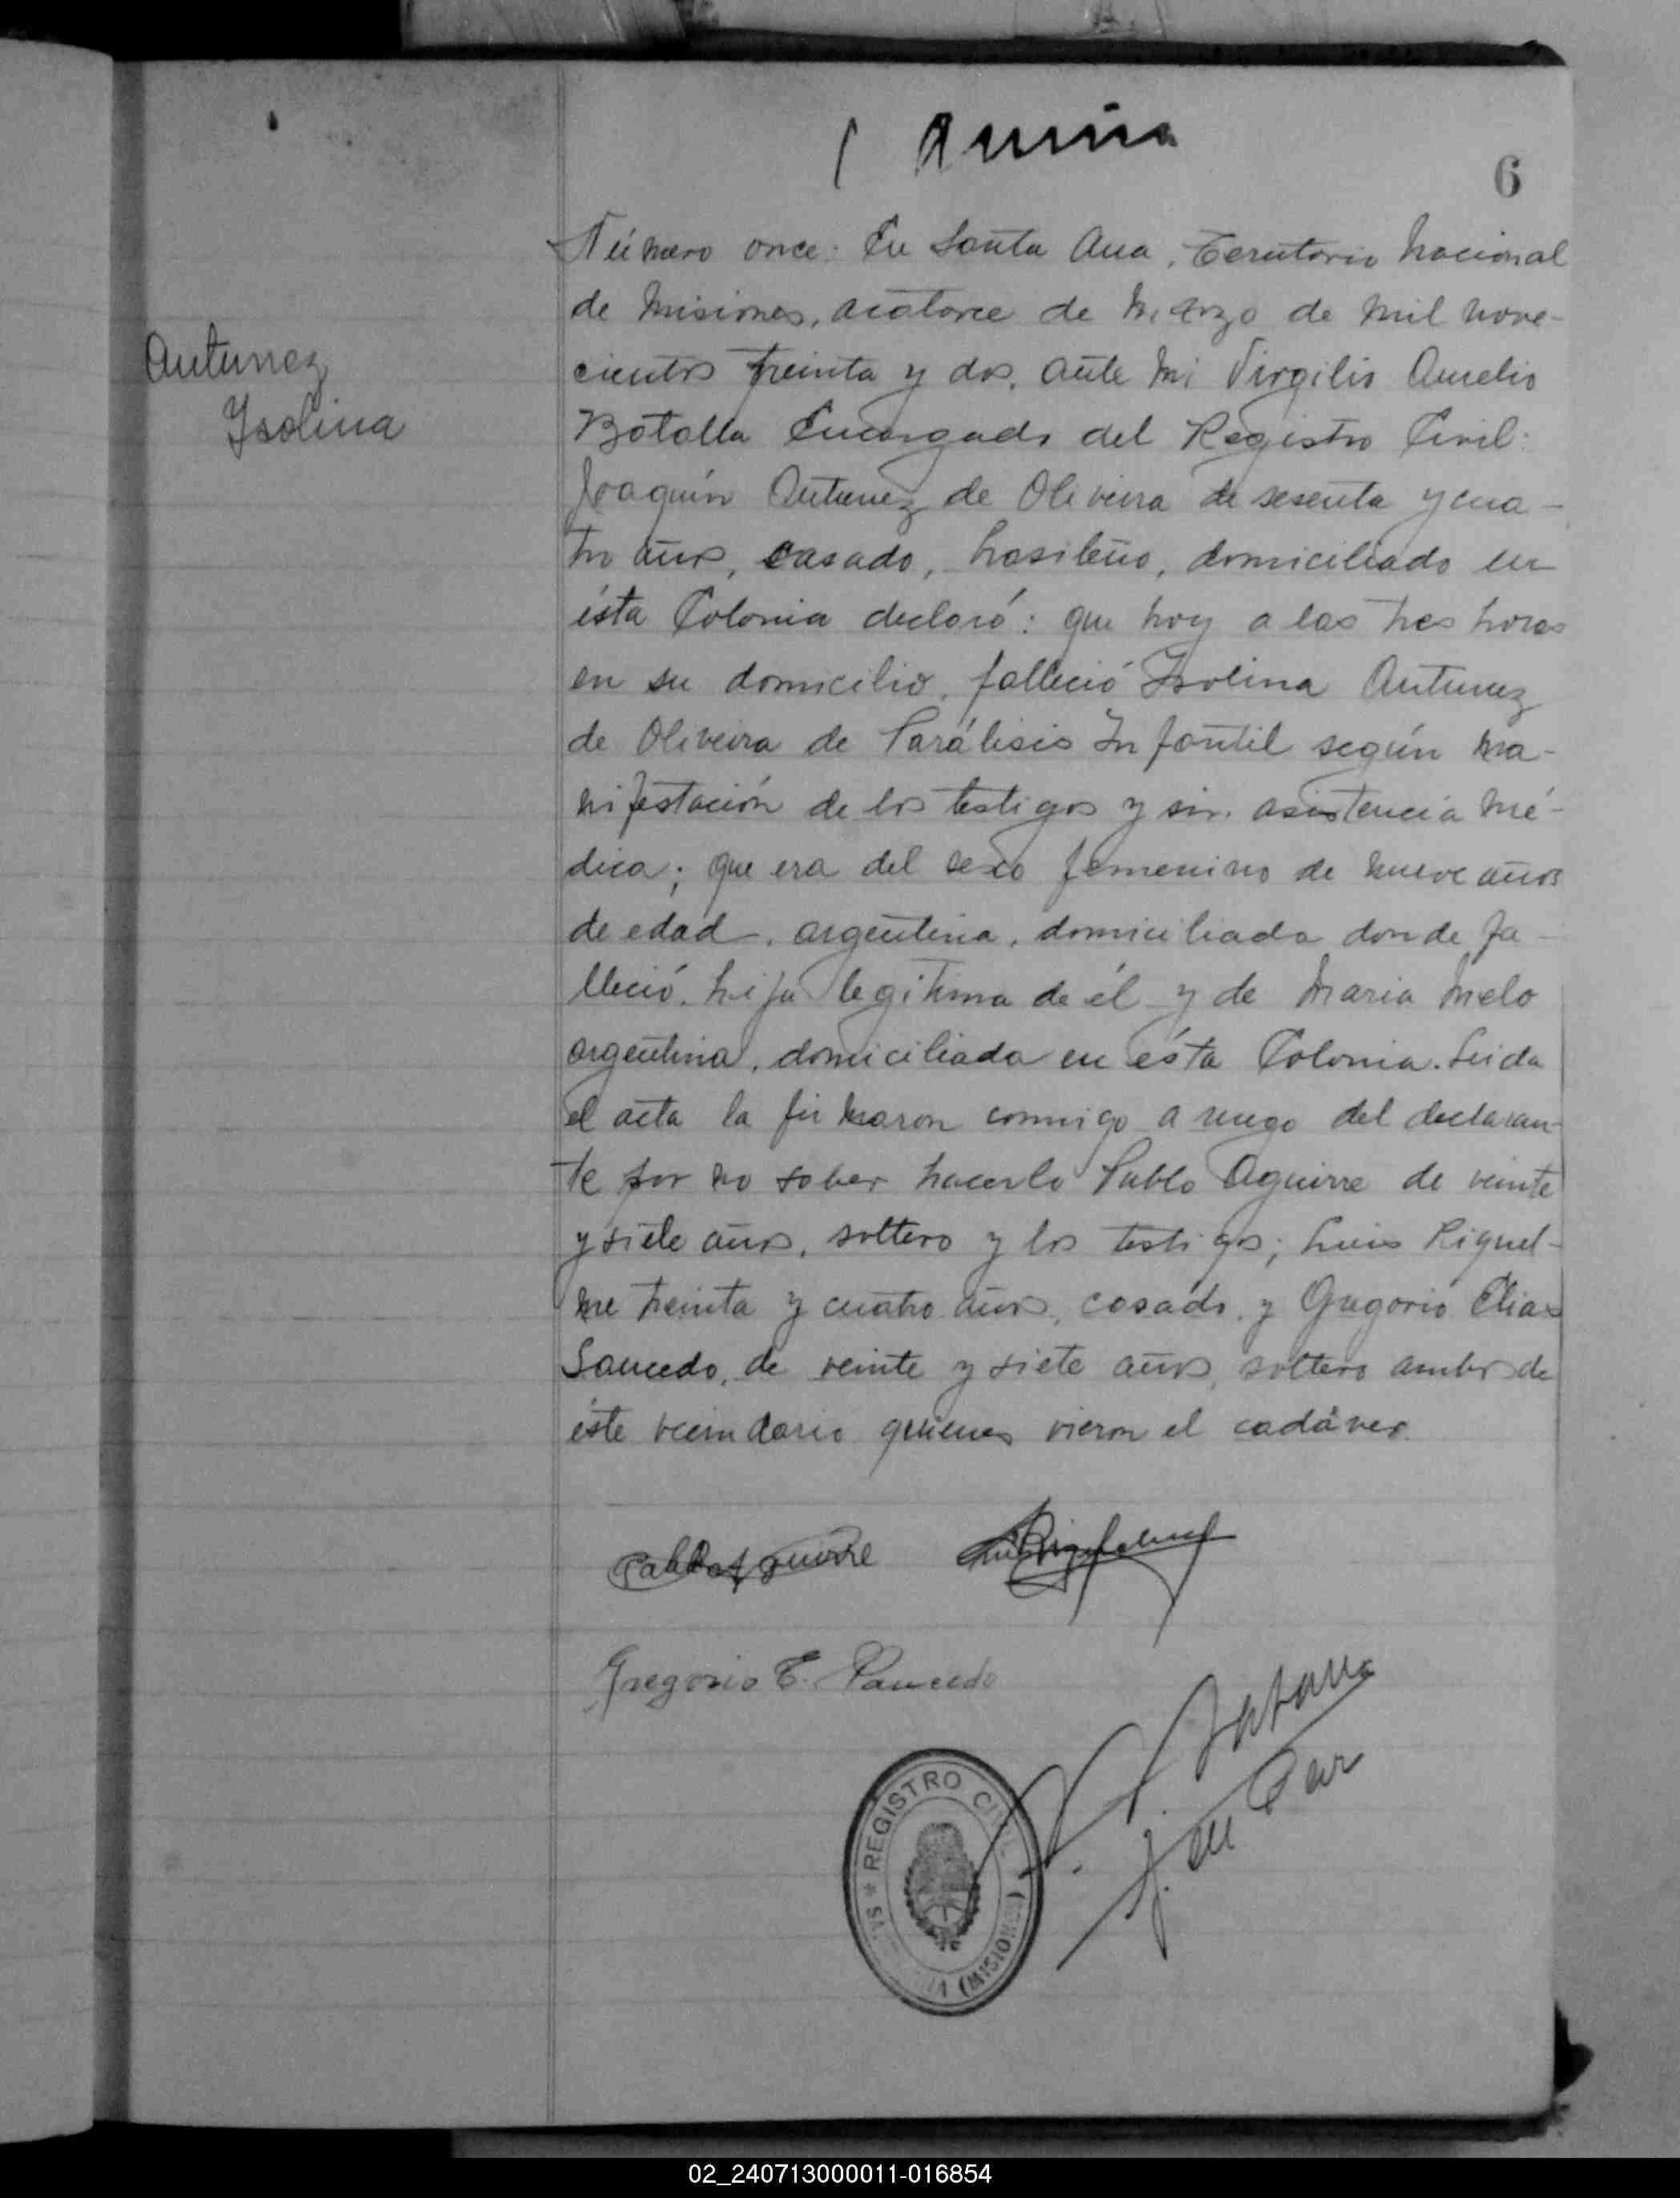 6
Número once: En Santa Ana, Territorio Nacional
de Misiones, a catorce de Marzo de mil nove-
cientos treinta y dos, ante mi Virgilio Aurelio
Botalla Encargado del Registro Civil:
Joaquín Antunez de Oliveira de sesenta y cua-
tro años, casado, brasileño, domiciliado en
ésta Colonia declaró: que hoy a las tres horas
en su domicilio, falleció Isolina Antunez
de Oliveira de Parálisis Infantil según ma-
nifestación de los testigos y sin asistencia mé-
dica; que era del sexo femenino de nueve años
de edad, argentina, domiciliada donde fa-
lleció, hija legitima de él y de Maria Melo
argentina, domiciliada en ésta Colonia. Leida
el acta la firmaron conmigo a ruego del declaran-
te por no saber hacerlo Pablo Aguirre de veinte
y siete años, soltero y los testigos; Luis Riquel-
me treinta y cuatro años, casado, y Gregorio Elias
Saucedo, de veinte y siete años, soltero ambos de
éste vecindario quienes vieron el cadáver.
Antunez
Isolina
Pablo Aguirre
Gregorio E. Saucedo
REGISTRO CIVIL
(MISIONES)
02_240713000011-016854